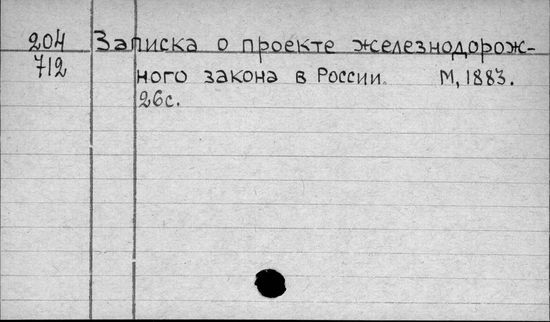 204 Записка о проекте железнодорож-
712 ного закона в России. М, 1883.
26с.